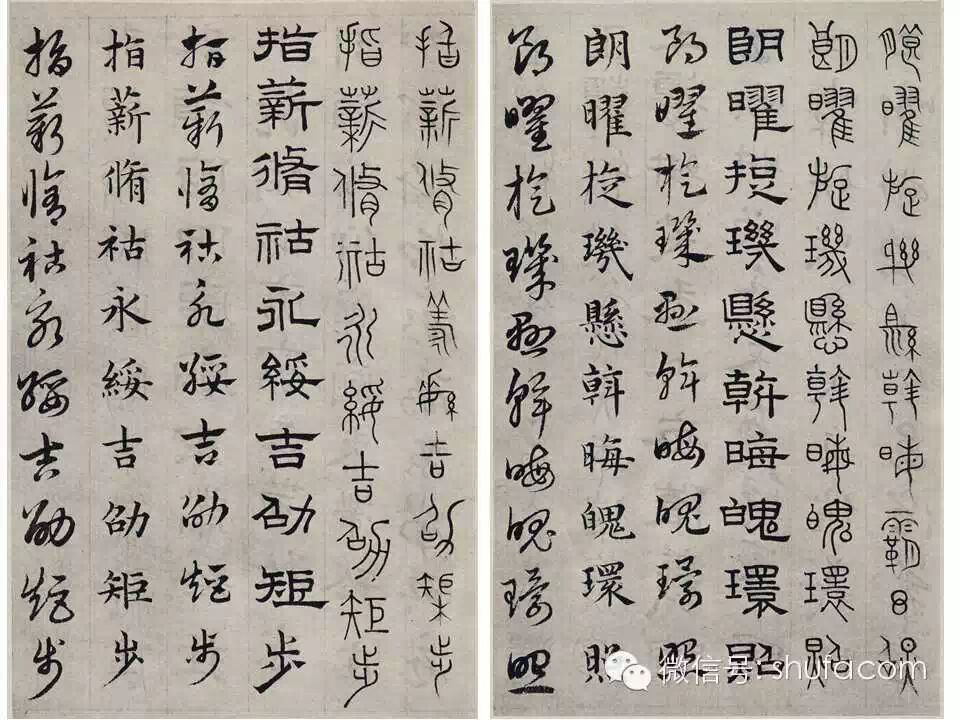 朗曜旋璣縣斡晦霸照
朗曜旋璣懸斡晦魄環照
朗曜旋璣懸斡晦魄環照
朗曜旋璣懸斡晦魄環照
朗曜旋璣懸斡晦魄環照
朗曜旋璣懸斡晦魄環照
指薪脩祜羕綏吉劭矩步
指薪脩祜永綏吉劭矩步
指薪脩祜永綏吉劭矩步
指薪脩祜永綏吉劭矩步
指薪脩祜永綏吉劭矩步
指薪脩祜永綏吉劭矩步
微信号: shufacom